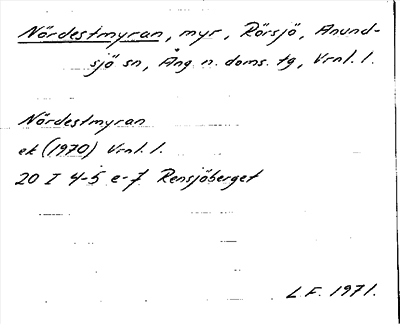 Nördestmyran, myr, Rörsjö, Anund-
sjö sn, Ång. n. doms. tg, Vrnl. l.
Nördestmyran
ek (1970) Vrnl. l.
20 I 4-5 e-f Rensjöberget
L.F. 1971.